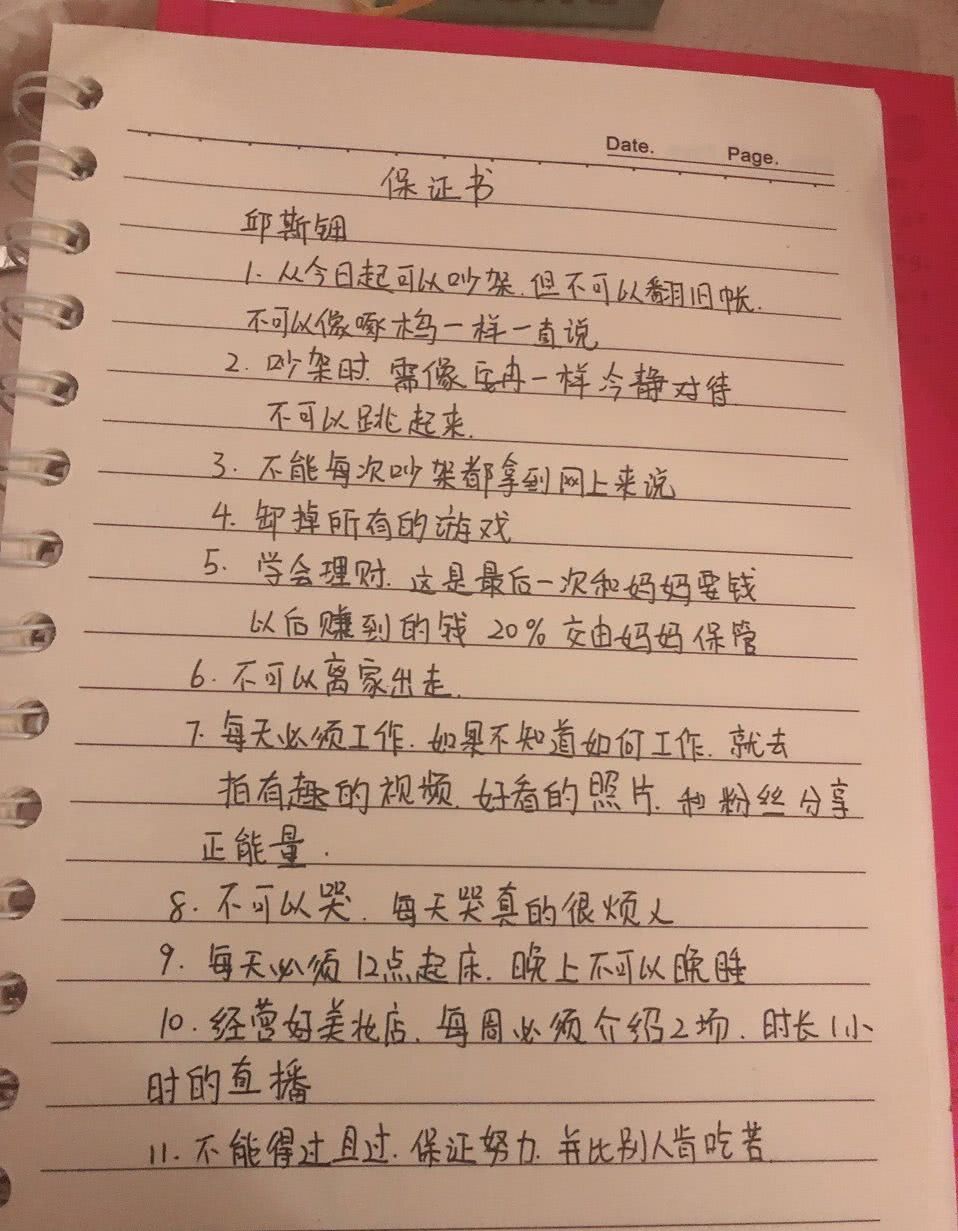 Date.
Page.
保证书
邱斯钿
1. 从今日起可以吵架.但不可以翻旧帐.
不可以像啄木鸟一样一直说
2. 吵架时.需像 一样冷静对待
不可以跳起来.
3. 不能每次吵架都拿到网上来说
4. 卸掉所有的游戏
5. 学会理财.这是最后一次和妈妈要钱
以后赚到的钱 20% 交由妈妈保管
6. 不可以离家出走.
7. 每天必须工作.如果不知道如何工作.就去
拍有趣的视频.好看的照片.和粉丝分享
正能量.
8. 不可以哭.每天哭真的很烦人
9. 每天必须12点起床.晚上不可以晚睡
10. 经营好美妆店.每周必须介绍2场.时长1小
时的直播
11. 不能得过且过.保证努力.并比别人肯吃苦.